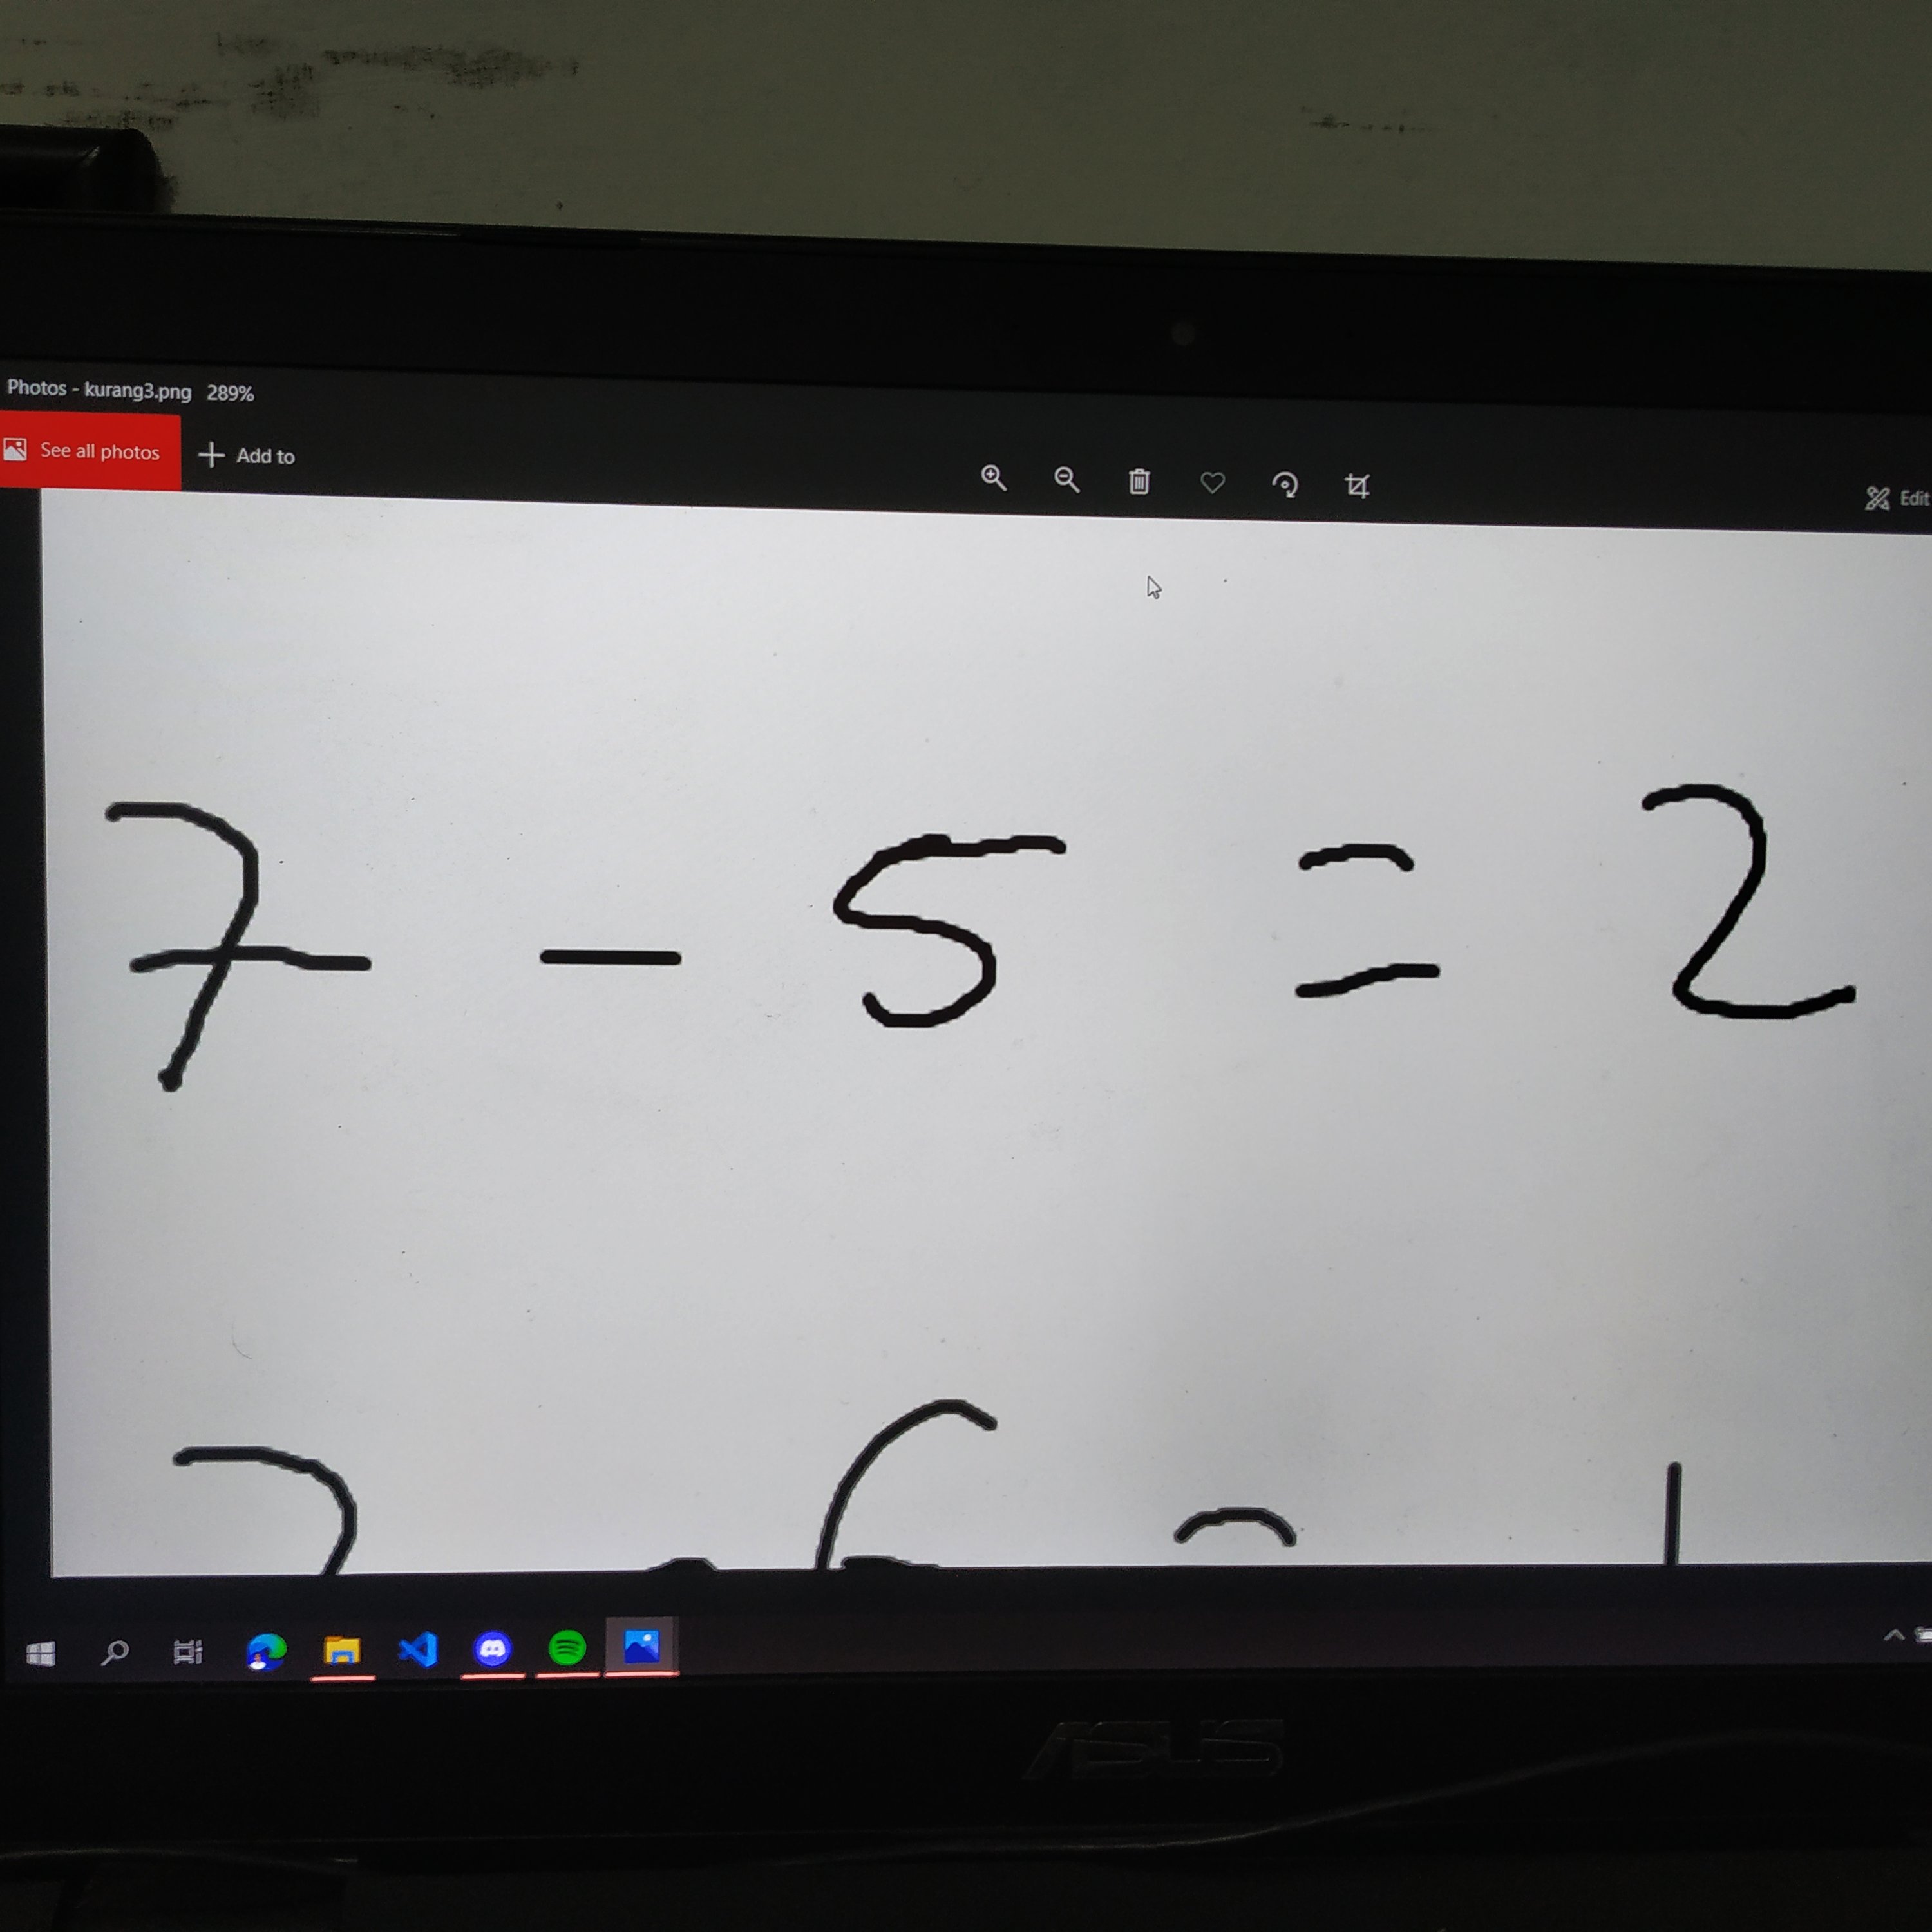 Photos - kurang3.png 289%
See all photos Add to
Edit
7 - 5 = 2
ASUS